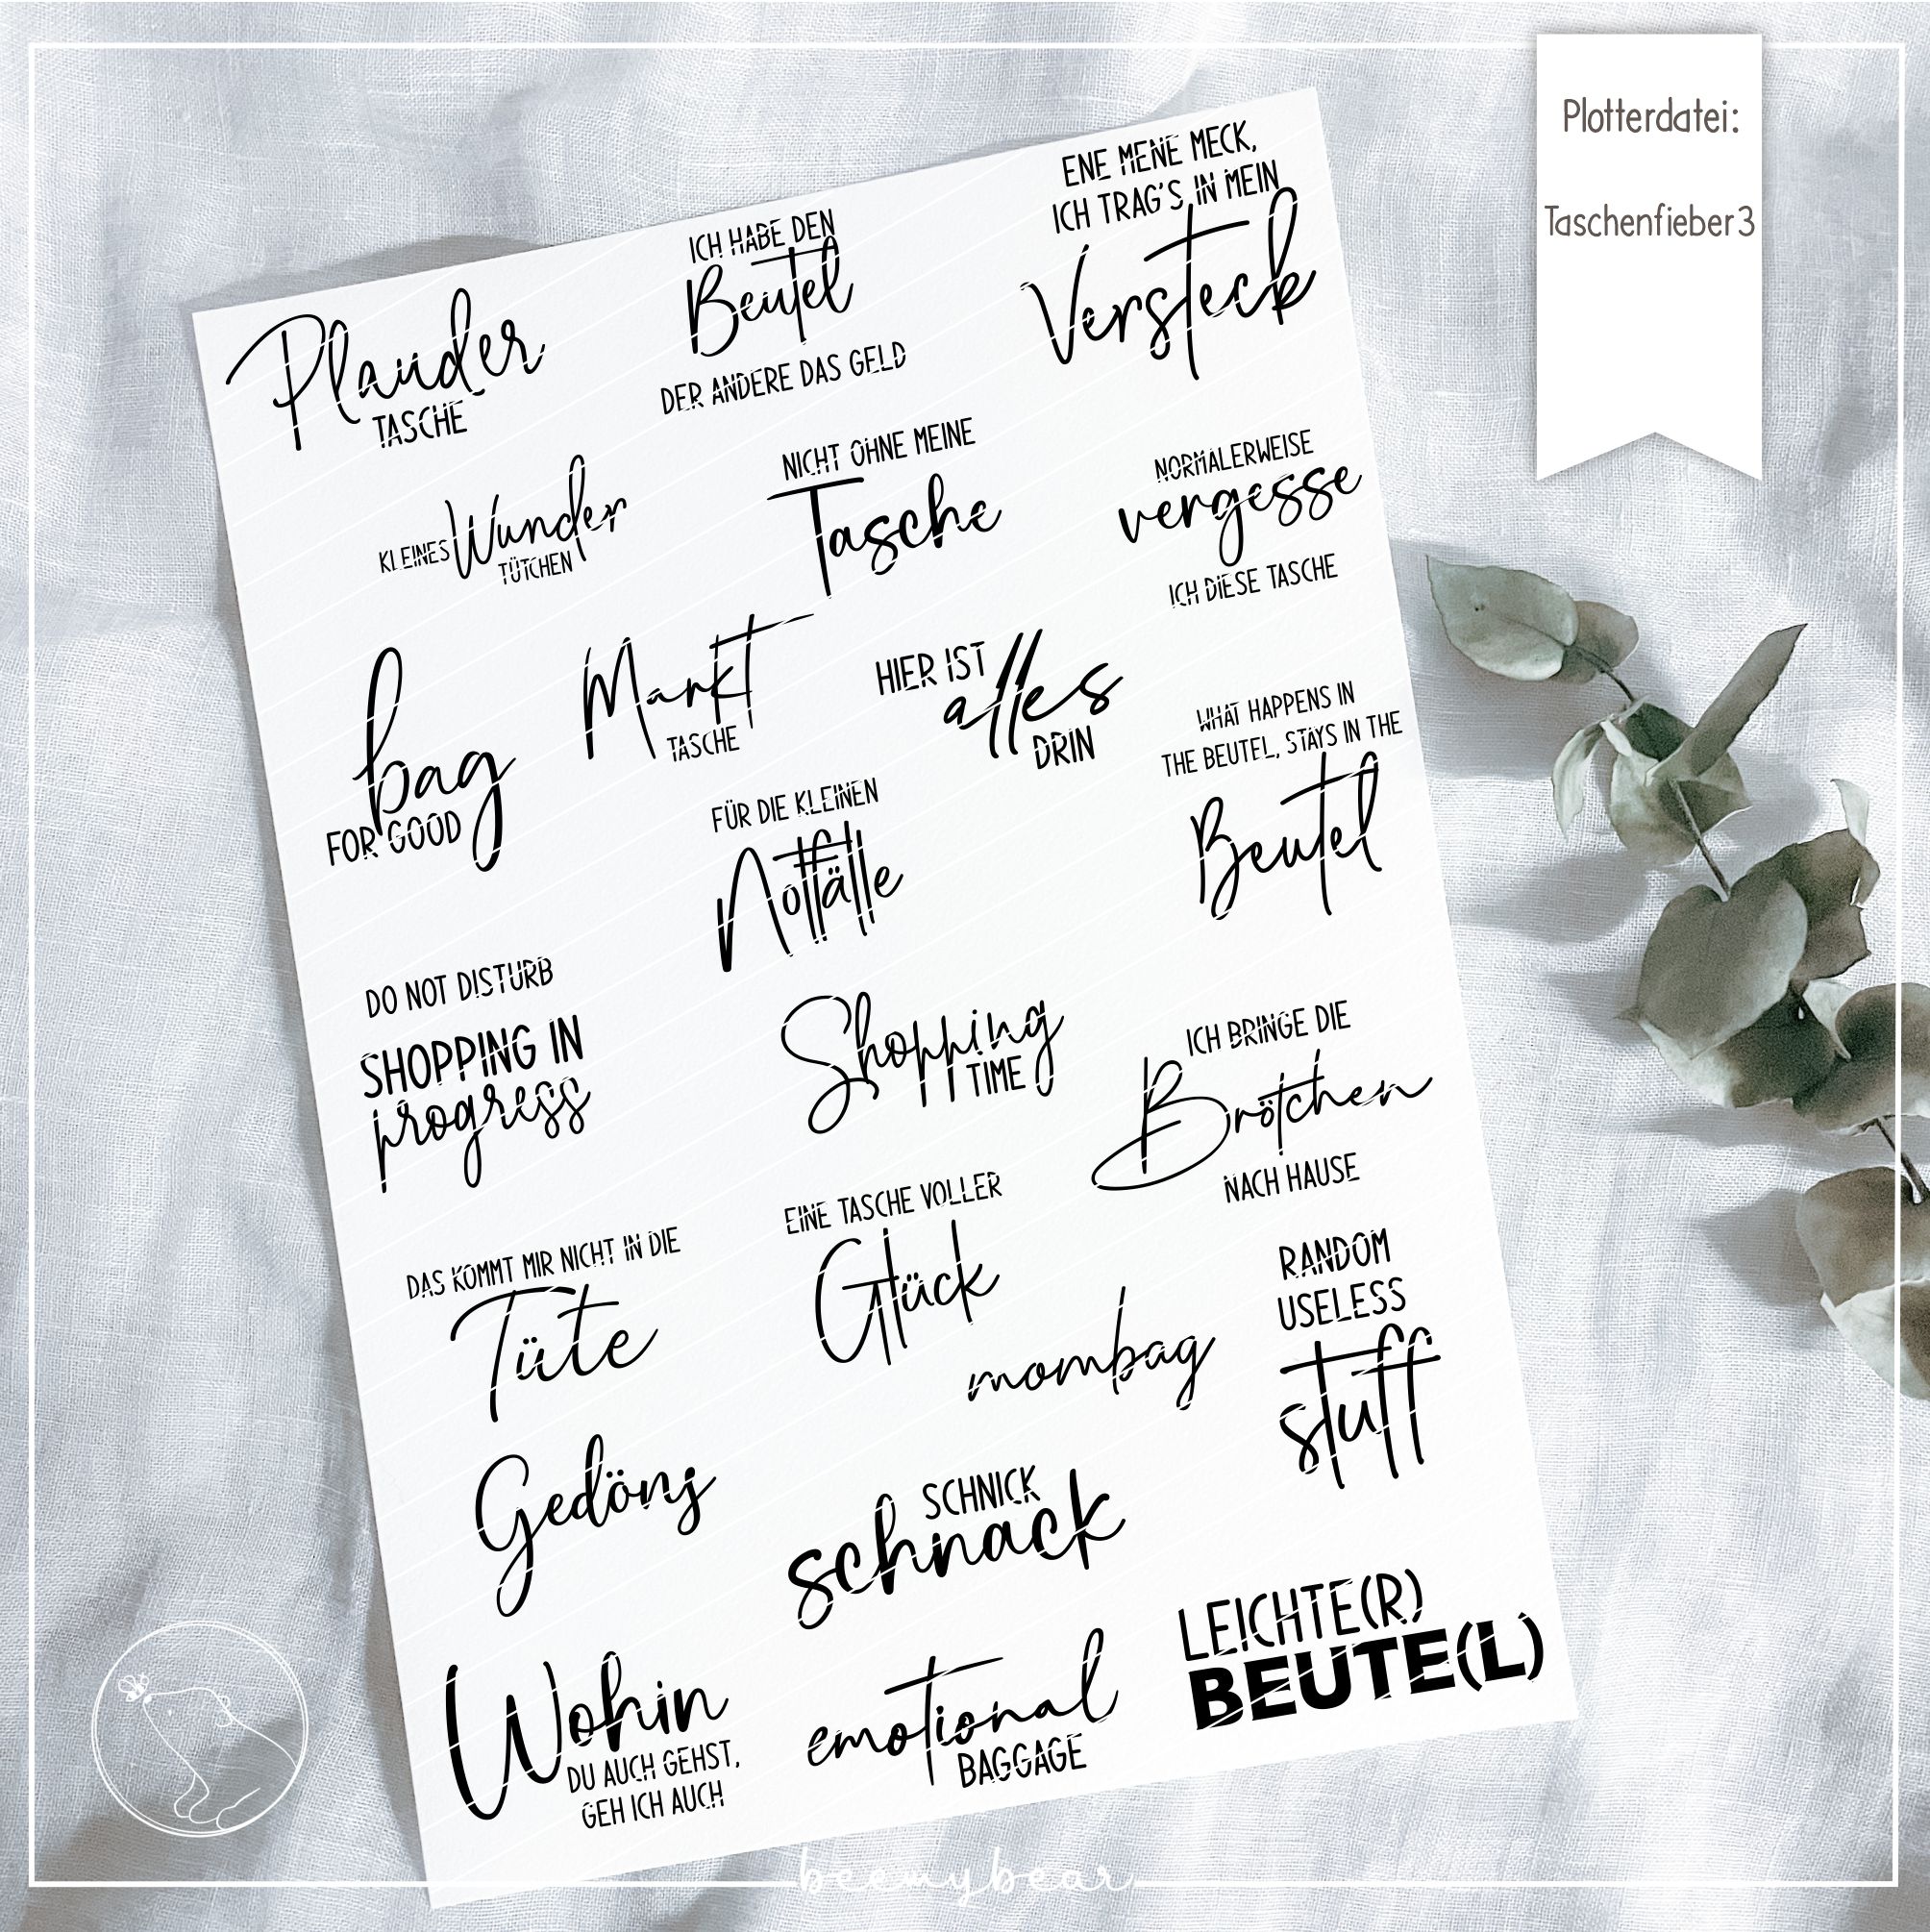 Plotterdatei:
Taschenfieber3
Plauder
TASCHE
ICH HABE DEN
Beutel
DER ANDERE DAS GELD
ENE MENE MECK,
ICH TRAG'S IN MEIN
Versteck
KLEINES Wunder
TÜTCHEN
NICHT OHNE MEINE
Tasche
NORMALERWEISE
vergesse
ICH DIESE TASCHE
bag
FOR GOOD
Markt
TASCHE
HIER IST
alles
DRIN
WHAT HAPPENS IN
THE BEUTEL, STAYS IN THE
Beutel
FÜR DIE KLEINEN
Notfälle
DO NOT DISTURB
SHOPPING IN
progress
Shopping
TIME
ICH BRINGE DIE
Brötchen
NACH HAUSE
DAS KOMMT MIR NICHT IN DIE
Tüte
EINE TASCHE VOLLER
Glück
mombag
RANDOM
USELESS
stuff
Gedöns
SCHNICK
schnack
LEICHTE(R)
BEUTE(L)
Wohin
DU AUCH GEHST,
GEH ICH AUCH
emotional
BAGGAGE
beemybear